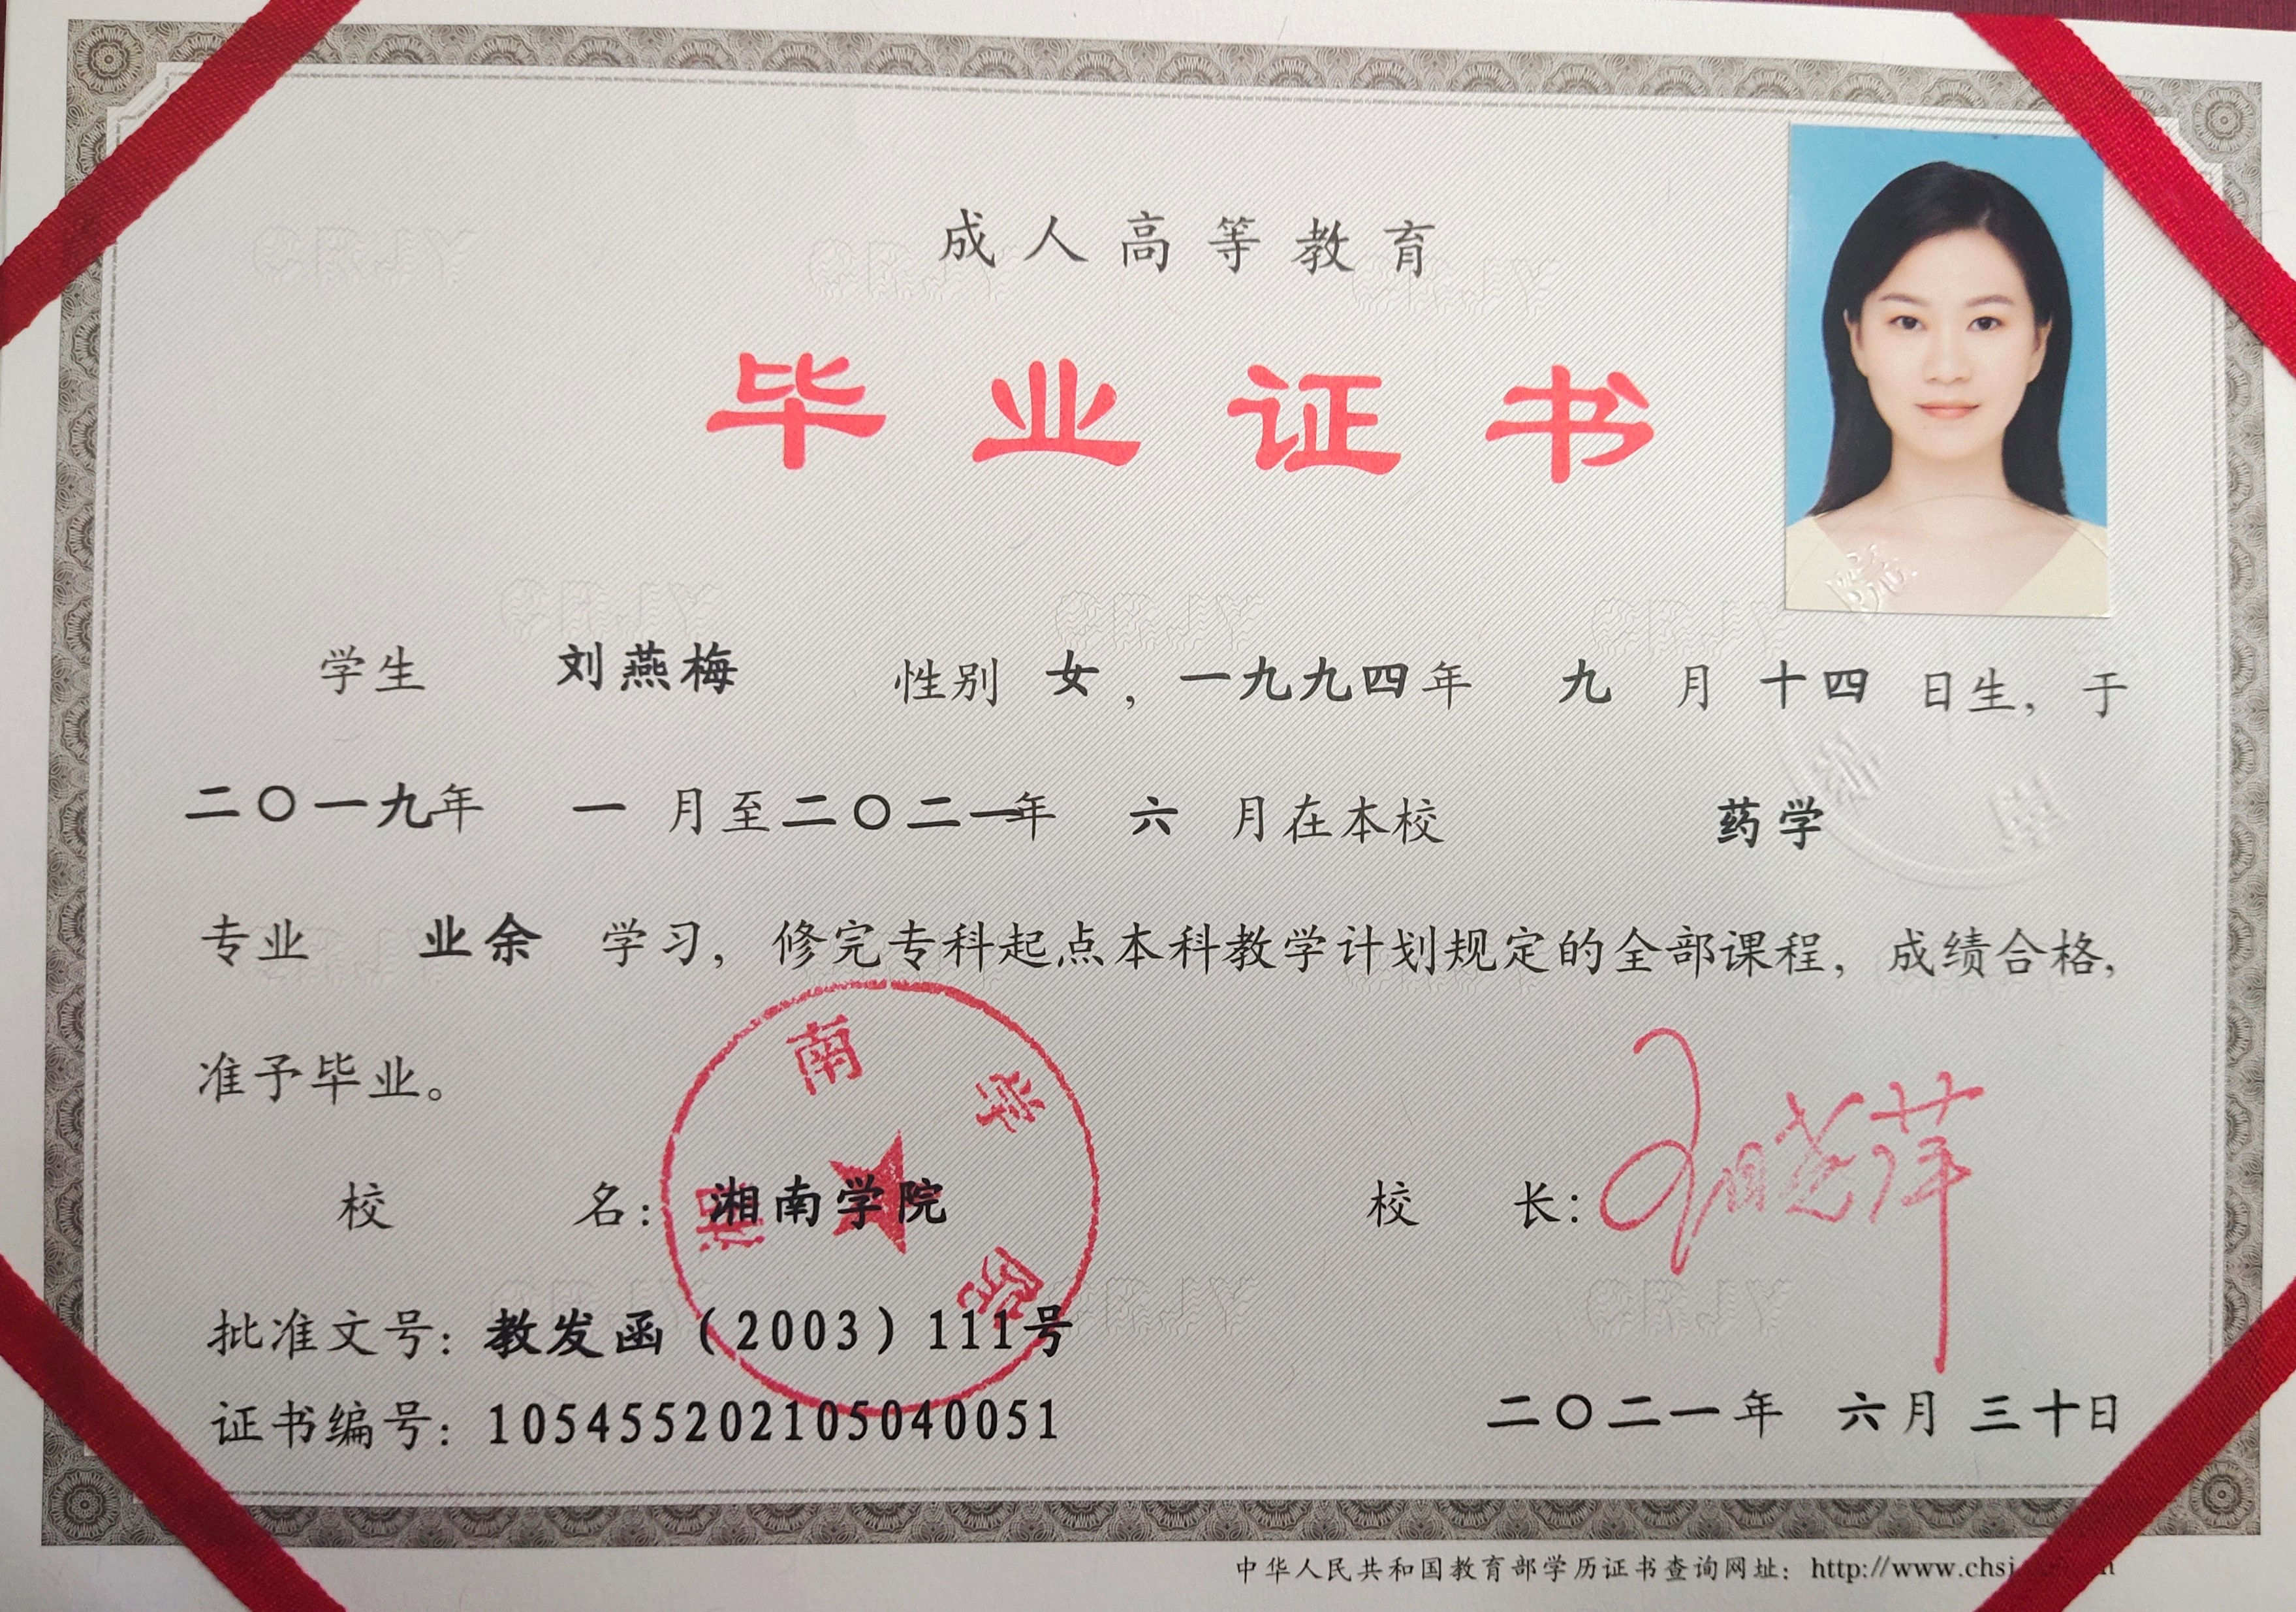 成人高等教育
毕业证书
学生 刘燕梅 性别 女，一九九四年 九 月 十四 日生，于
二〇一九年 一 月至二〇二一年 六 月在本校 药学
专业 业余 学习，修完专科起点本科教学计划规定的全部课程，成绩合格，
准予毕业。
校 名：湘南学院
校 长：
湘南学院
批准文号：教发函（2003）111号
证书编号：105455202105040051
二〇二一年 六月 三十日
中华人民共和国教育部学历证书查询网址：http://www.chsi
CRJY